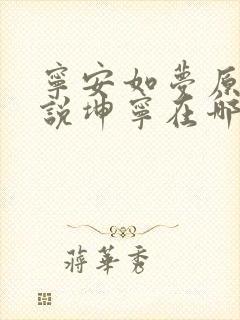 寧安如夢原
說坤寧在哪
蔣華秀